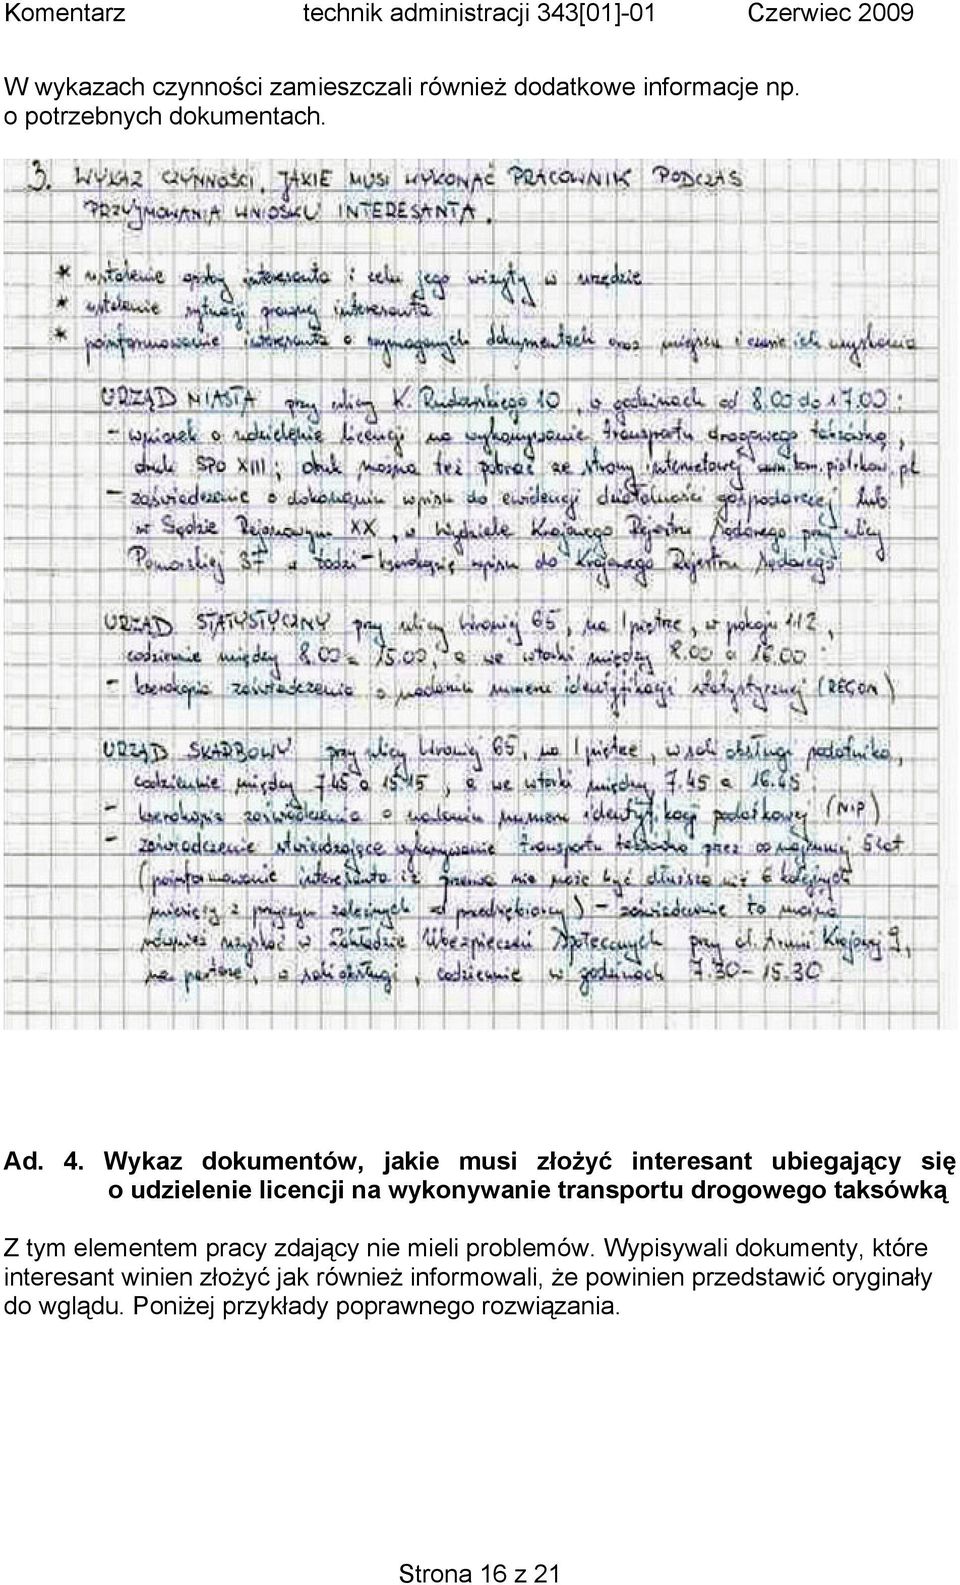 Komentarz technik administracji 343[01]-01 Czerwiec 2009
W wykazach czynności zamieszczali również dodatkowe informacje np.
o potrzebnych dokumentach.
3. WYKAZ CZYNNOŚCI, JAKIE MUSI WYKONAĆ PRACOWNIK PODCZAS
PRZYJMOWANIA WNIOSKU INTERESANTA.
* ustalenie osoby interesanta i celu jego wizyty w urzędzie
* ustalenie sytuacji prawnej interesanta
* poinformowanie interesanta o wymaganych dokumentach oraz miejscu i czasie ich uzyskania
URZĄD MIASTA przy ulicy K. Rudowskiego 10, w godzinach od 8.00 do 17.00:
- wniosek o udzielenie licencji na wykonywanie transportu drogowego taksówką,
druk SPO XIII; druk można też pobrać ze strony internetowej www.bip.piotrkow.pl
- zaświadczenie o dokonaniu wpisu do ewidencji działalności gospodarczej lub
w Sądzie Rejonowym XX, w Wydziele Krajowego Rejestru Sądowego przy ulicy
Pomorskiej 37 w Łodzi - kserokopię wpisu do Krajowego Rejestru Sądowego
URZĄD STATYSTYCZNY przy ulicy Wroniej 65, na I piętrze, w pokoju 112,
codziennie między 8.00 a 15.00, a we wtorki między 8.00 a 16.00:
- kserokopia zaświadczenia o nadaniu numeru identyfikacji statystycznej (REGON)
URZĄD SKARBOWY przy ulicy Wroniej 65, na I piętrze, w sali obsługi podatnika,
codziennie między 7.45 a 15.15, a we wtorki między 7.45 a 16.45:
- kserokopia zaświadczenia o nadaniu numeru identyfikacji podatkowej (NIP)
- zaświadczenie stwierdzające wykonywanie transportu taksówką przez co najmniej 5 lat
(poinformowanie interesanta iż przerwa nie może być dłuższa niż 6 kolejnych
miesięcy z przyczyn zależnych od przedsiębiorcy) - zaświadczenie to można
również uzyskać w Zakładzie Ubezpieczeń Społecznych przy al. Armii Krajowej 9,
na parterze, w sali obsługi, codziennie w godzinach 7.30 - 15.30
Ad. 4. Wykaz dokumentów, jakie musi złożyć interesant ubiegający się
o udzielenie licencji na wykonywanie transportu drogowego taksówką
Z tym elementem pracy zdający nie mieli problemów. Wypisywali dokumenty, które
interesant winien złożyć jak również informowali, że powinien przedstawić oryginały
do wglądu. Poniżej przykłady poprawnego rozwiązania.
Strona 16 z 21